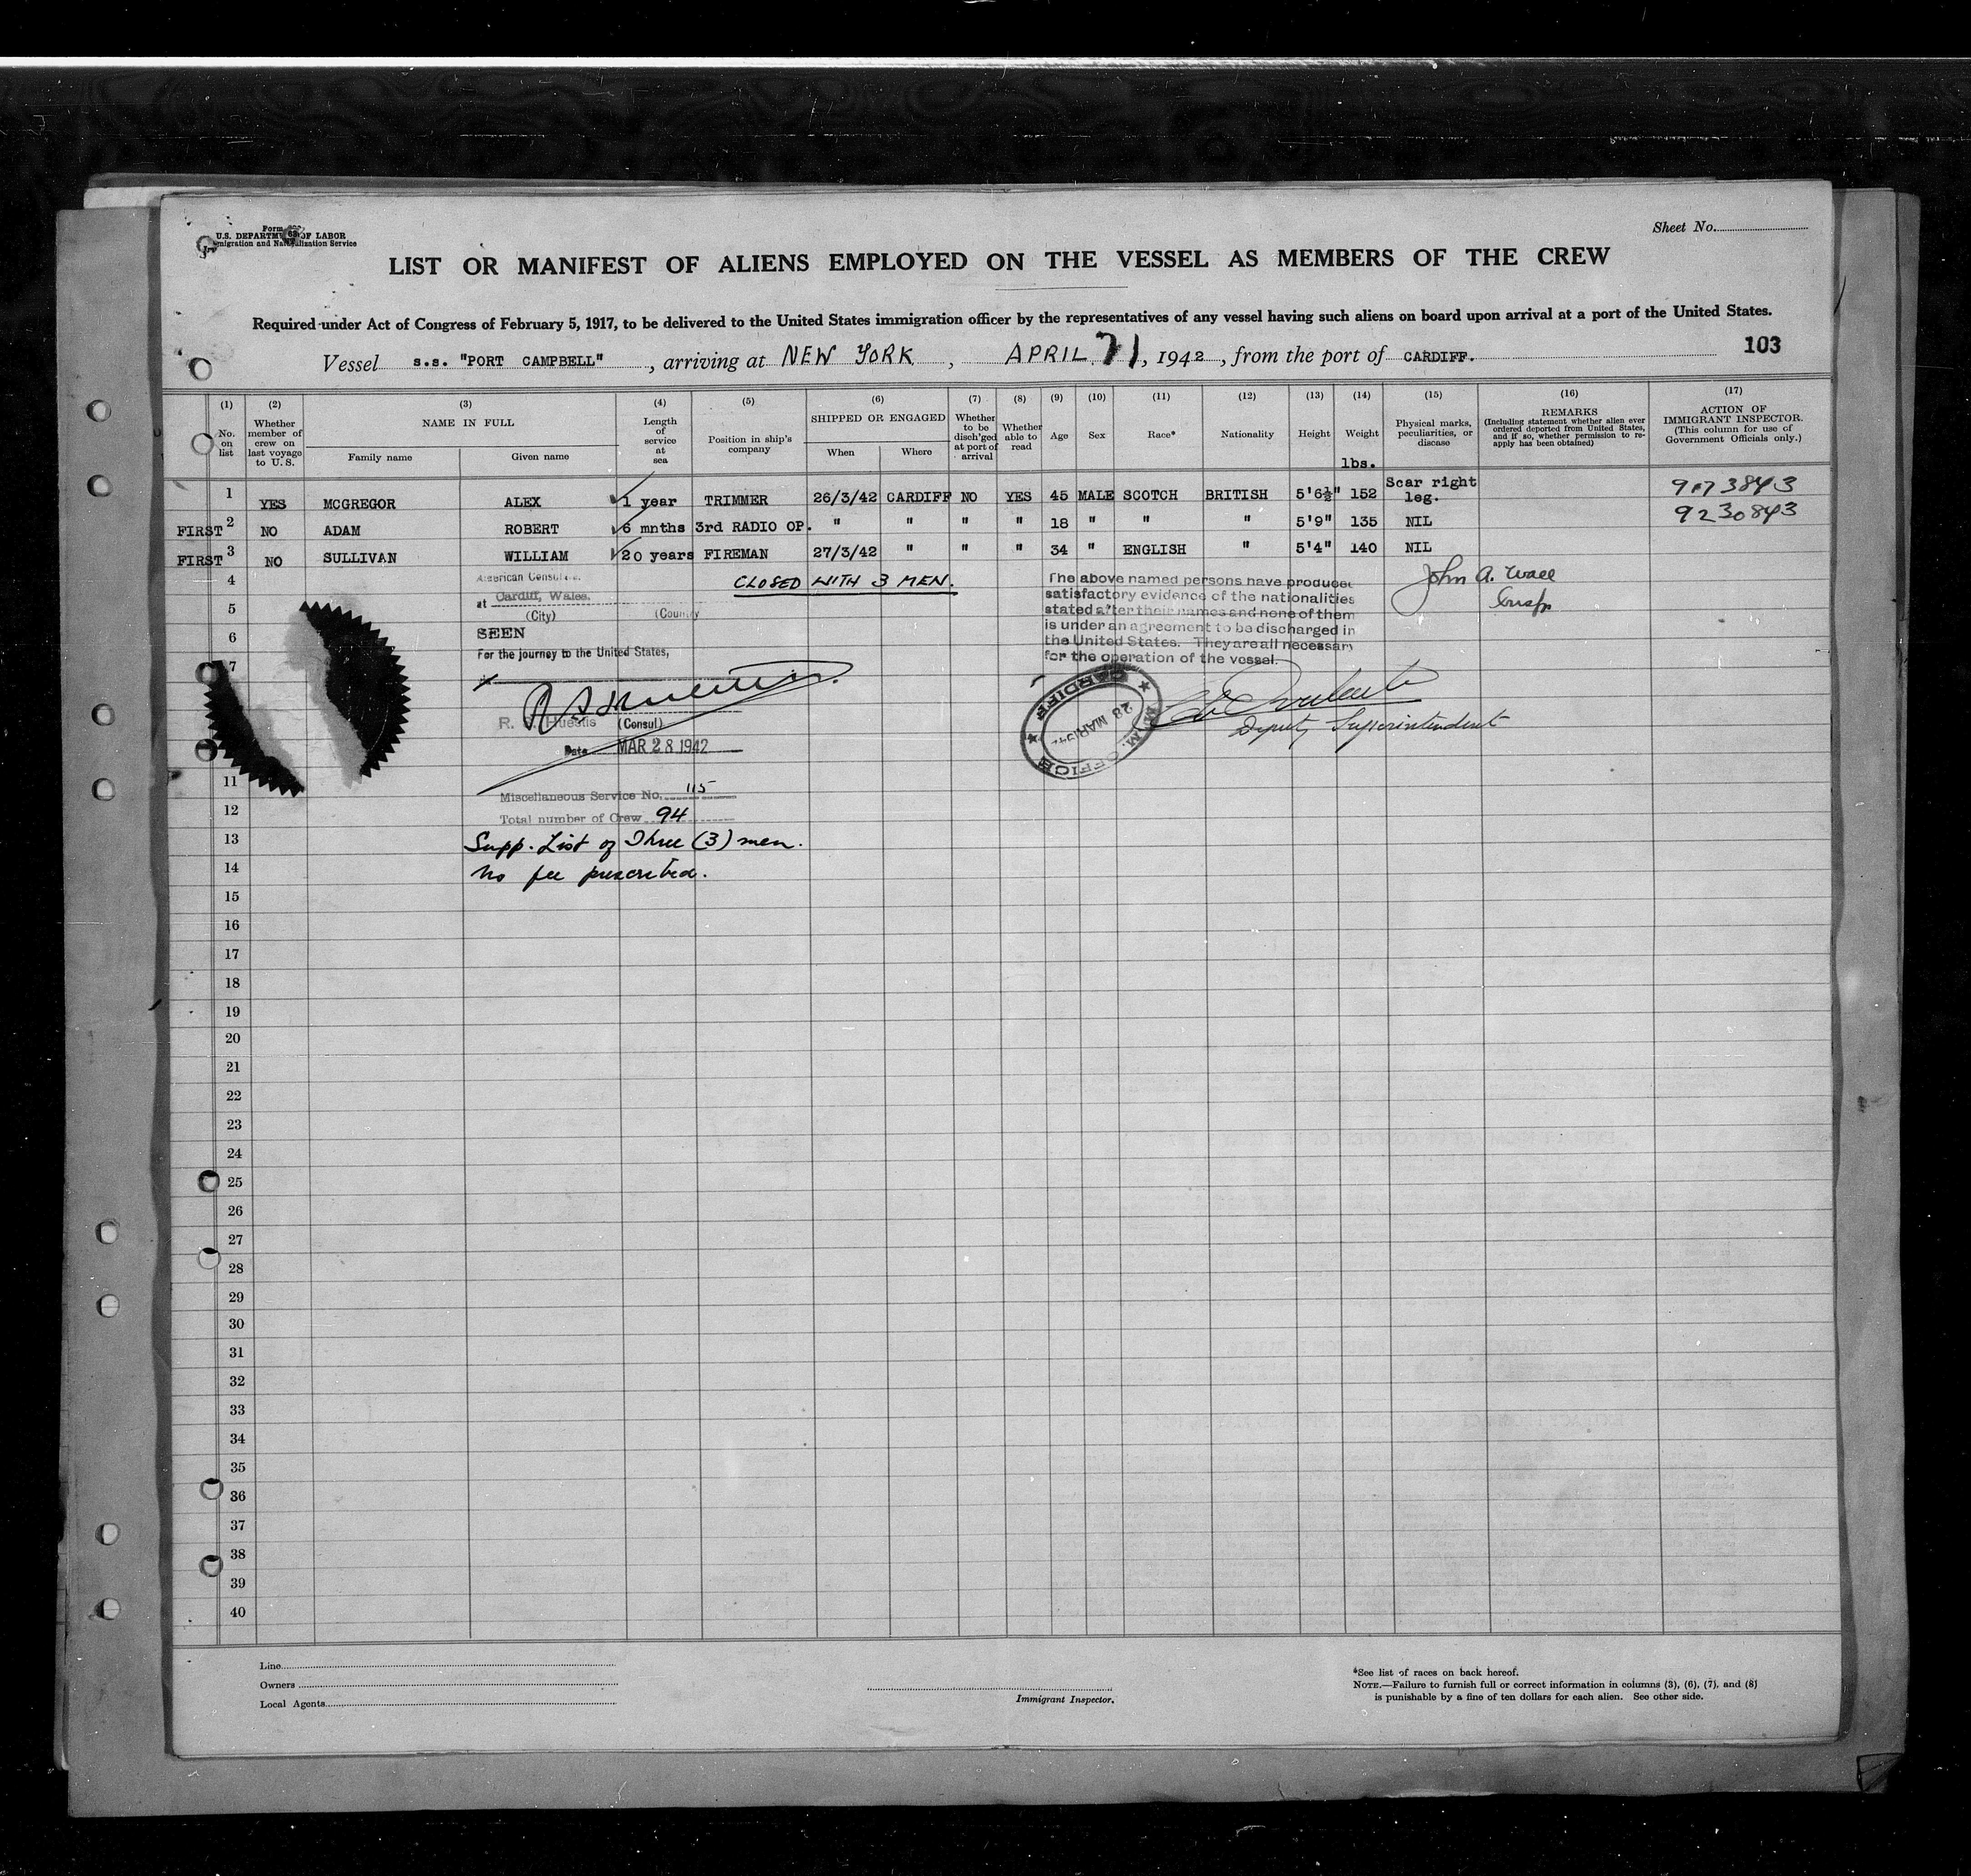 Form
U.S. DEPARTM OF LABOR
migration and Naturalization Service
Sheet No.
LIST OR MANIFEST OF ALIENS EMPLOYED ON THE VESSEL AS MEMBERS OF THE CREW
Required under Act of Congress of February 5, 1917, to be delivered to the United States immigration officer by the representatives of any vessel having such aliens on board upon arrival at a port of the United States.
103
Vessel s.s. "PORT CAMPBELL", arriving at NEW YORK, APRIL 21, 1942, from the port of CARDIFF.
(1) No. on list
(2) Whether member of crew on last voyage to U.S.
(3) NAME IN FULL
Family name
Given name
(4) Length of service at sea
(5) Position in ship's company
(6) SHIPPED OR ENGAGED
When
Where
(7) Whether to be disch'ged at port of arrival
(8) Whether able to read
(9) Age
(10) Sex
(11) Race*
(12) Nationality
(13) Height
(14) Weight
lbs.
(15) Physical marks, peculiarities, or disease
(16) REMARKS
(Including statement whether alien ever ordered deported from United States, and if so, whether permission to re-apply has been obtained)
(17) ACTION OF IMMIGRANT INSPECTOR.
(This column for use of Government Officials only.)
1 YES MCGREGOR ALEX 1 year TRIMMER 26/3/42 CARDIFF NO YES 45 MALE SCOTCH BRITISH 5'6½" 152 Scar right leg. 9173843
FIRST 2 NO ADAM ROBERT 6 mnths 3rd RADIO OP. " " " " 18 " " " 5'9" 135 NIL 9230843
FIRST 3 NO SULLIVAN WILLIAM 20 years FIREMAN 27/3/42 " " " 34 " ENGLISH " 5'4" 140 NIL
4
CLOSED WITH 3 MEN.
American Consulate.
at Cardiff, Wales.
(City) (Country
SEEN
For the journey to the United States,
R. S. Huestis (Consul)
Date MAR 28 1942
Miscellaneous Service No. 115
Total number of Crew 94
Supp. List of Three (3) men.
No fee prescribed.
The above named persons have produced
satisfactory evidence of the nationalities
stated after their names and none of them
is under an agreement to be discharged in
the United States. They are all necessary
for the operation of the vessel.
CARDIFF
28 MAR 1942
M.M. OFFICE
Deputy Superintendent
John A. Wall
Insp
5
6
7
11
12
13
14
15
16
17
18
19
20
21
22
23
24
25
26
27
28
29
30
31
32
33
34
35
36
37
38
39
40
Line
Owners
Local Agents
Immigrant Inspector.
*See list of races on back hereof.
NOTE.—Failure to furnish full or correct information in columns (3), (6), (7), and (8)
is punishable by a fine of ten dollars for each alien. See other side.